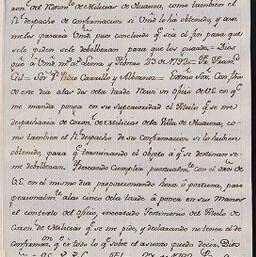 nem del Coron.l de Milicias de Huaura, como tambien el
R.l despacho de confirmacion si Vmd lo há obtenido, y asi-
mela pasará Vmd pues concluido q.e sea el fin para que
se le piden se le debolberan para que los guarde = Dios
gũe á Vmd m.s a.s Lima y Febrero 23 de 1792 =
S.or D.n Pedro Carrillo y Albornoz = Exmo Sor. Con fha
de este dia alas de la tarde Recivi un Oficio de V.E. con q.e
me manda ponga en su Superioridad el Titulo q.e se me
despacharia de Coron.l de Milicias de la Villa de Huaura; co-
mo tambien el R.l despacho de su Confirmacion si lo hubiere
obtenido, para q.e terminando el objeto á q.e se destinan se
me debolberan. Deseando Cumplir puntualm.te con el orden de
V.E. en el mismo dia, proporcionando hora oportuna, para
personalm.te alas cinco dela tarde á poner en sus manos
el contexto del Oficio, incertado Testimonio del Titulo de
Coron.l de Milicias q.e se me pide, y declarando no tener el de
confirmaz.on q.e es todo lo q.e sobre el asumto puedo decir. Dios